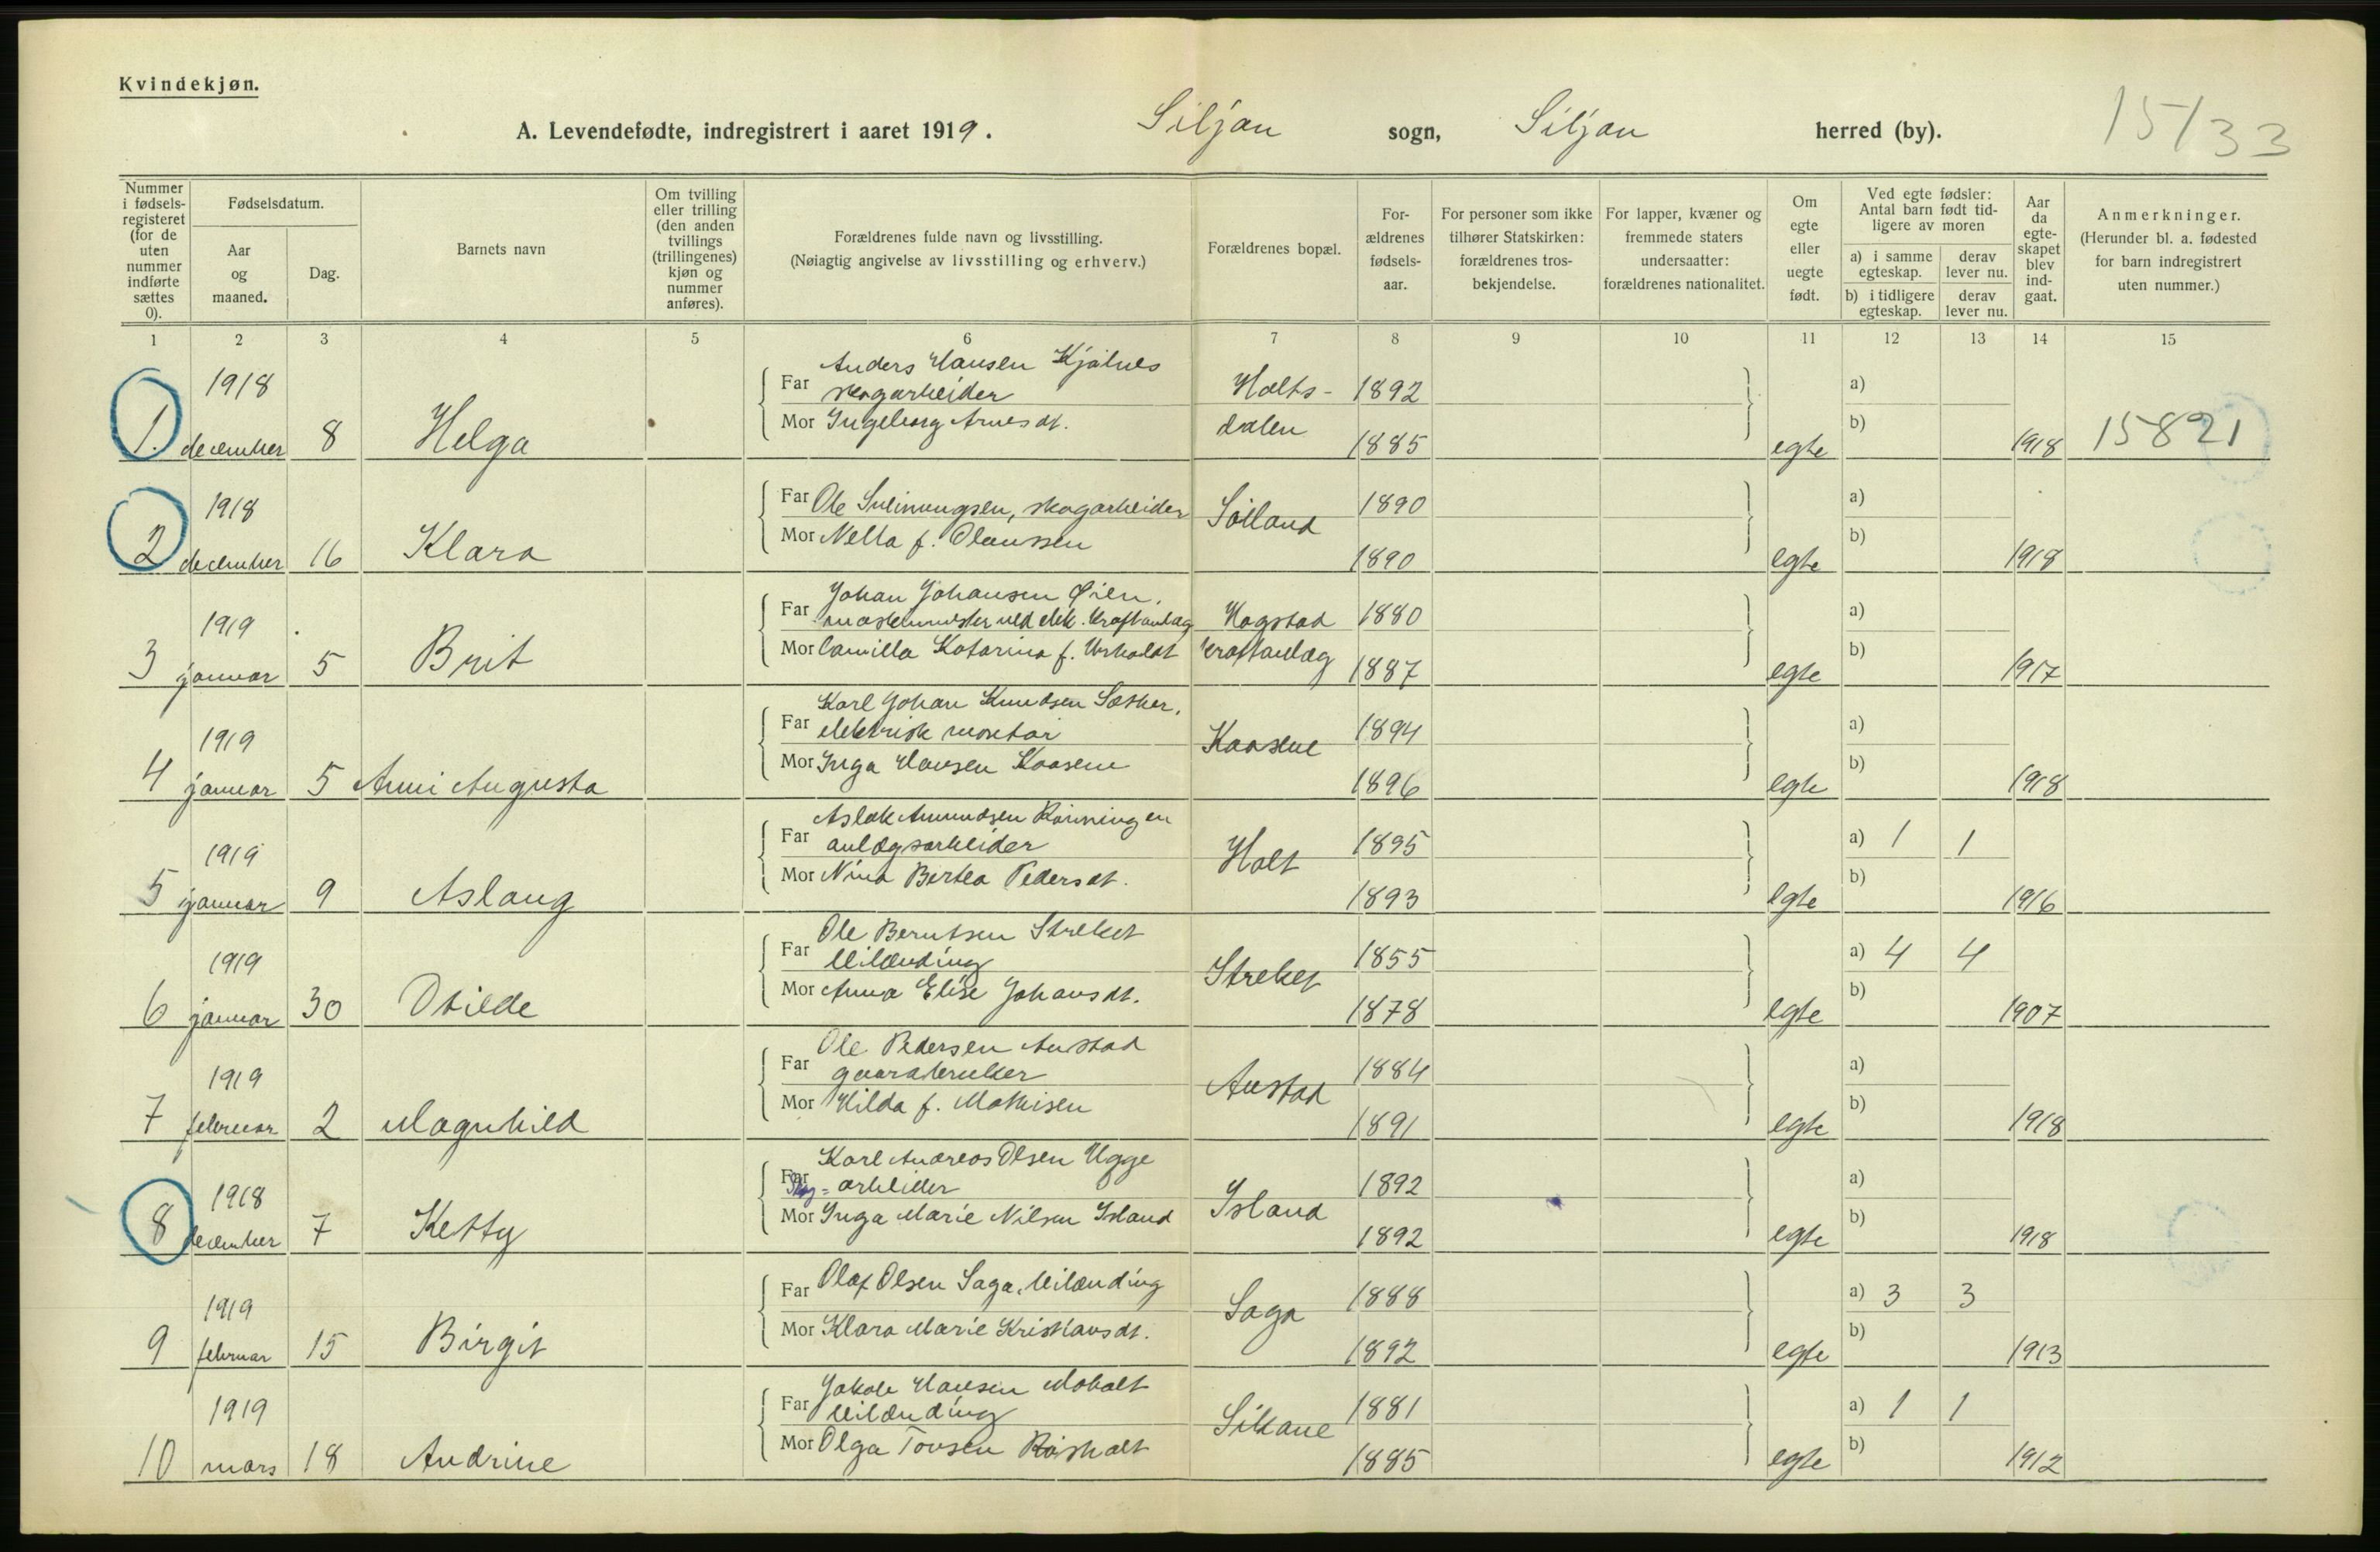 Kvindekjøn.
A. Levendefødte, indregistrert i aaret 1919. Siljan sogn, Siljan herred (by). 15/33
Nummer i fødsels-registeret (for de uten nummer indførte sættes 0).
Fødselsdatum.
Aar og maaned.
Dag.
Barnets navn
Om tvilling eller trilling (den anden tvillings (trillingenes) kjøn og nummer anføres).
Forældrenes fulde navn og livsstilling.
(Nøiagtig angivelse av livsstilling og erhverv.)
Forældrenes bopæl.
For-ældrenes fødsels-aar.
For personer som ikke tilhører Statskirken: forældrenes tros-bekjendelse.
For lapper, kvæner og fremmede staters undersaatter: forældrenes nationalitet.
Om egte eller uegte født.
Ved egte fødsler: Antal barn født tid-ligere av moren
a) i samme egteskap. derav lever nu.
b) i tidligere egteskap. derav lever nu.
Aar da egte-skapet blev ind-gaat.
Anmerkninger.
(Herunder bl. a. fødested for barn indregistrert uten nummer.)
1 2 3 4 5 6 7 8 9 10 11 12 13 14 15
Anders Hansen Kjølnes
1918 Far skogarbeider Holts- 1892 a)
Mor Ingeborg Arnesdt. dalen b)
1. december 8 Helga 1885 egte 1918 15821
1918 Far Ole Sveinungsen, skogarbeider Søiland 1890 a)
Mor Nella f. Olaussen b)
2 december 16 Klara 1890 egte 1918
Johan Johansen Øien,
1919 Far maskinmester ved elek. kraftanlæg Hogstad 1880 a)
Mor Camilla Katarina f. kraftanlæg b)
3 januar 5 Brit 1887 egte 1917
Karl Johan Knudsen Sæther,
1919 Far elektrisk montør Kaasene 1894 a)
Mor Inga Hansen Kaasene b)
4 januar 5 Anni Augusta 1896 egte 1918
Aslak Amundsen Rønningen
1919 Far anlægsarbeider Holt 1895 a) 1 1
Mor Nina Bertea Pedersdt. b)
5 januar 9 Aslaug 1893 egte 1916
Ole Berntsen Streket
1919 Far leilænding Streket 1855 a) 4 4
Mor Anna Elise Johansdt. b)
6 januar 30 Otilde 1878 egte 1907
Ole Pedersen Austad
1919 Far gaardbruker Austad 1884 a)
Mor Hilda f. Mathisen b)
7 februar 2 Magnhild 1891 egte 1918
Karl Andreas Olsen Ugge
1918 Far Skog=arbeider Island 1892 a)
Mor Inga Marie Nilsen Island b)
8 december 7 Ketty 1892 egte 1918
1919 Far Olaf Olsen Saga, leilænding Saga 1888 a) 3 3
Mor Klara Marie Kristiansdt. b)
9 februar 15 Birgit 1892 egte 1913
Jakob Hansen Moholt
1919 Far leilænding Sikane 1881 a) 1 1
Mor Olga Tovsen Røsholt b)
10 mars 18 Andrine 1885 egte 1912